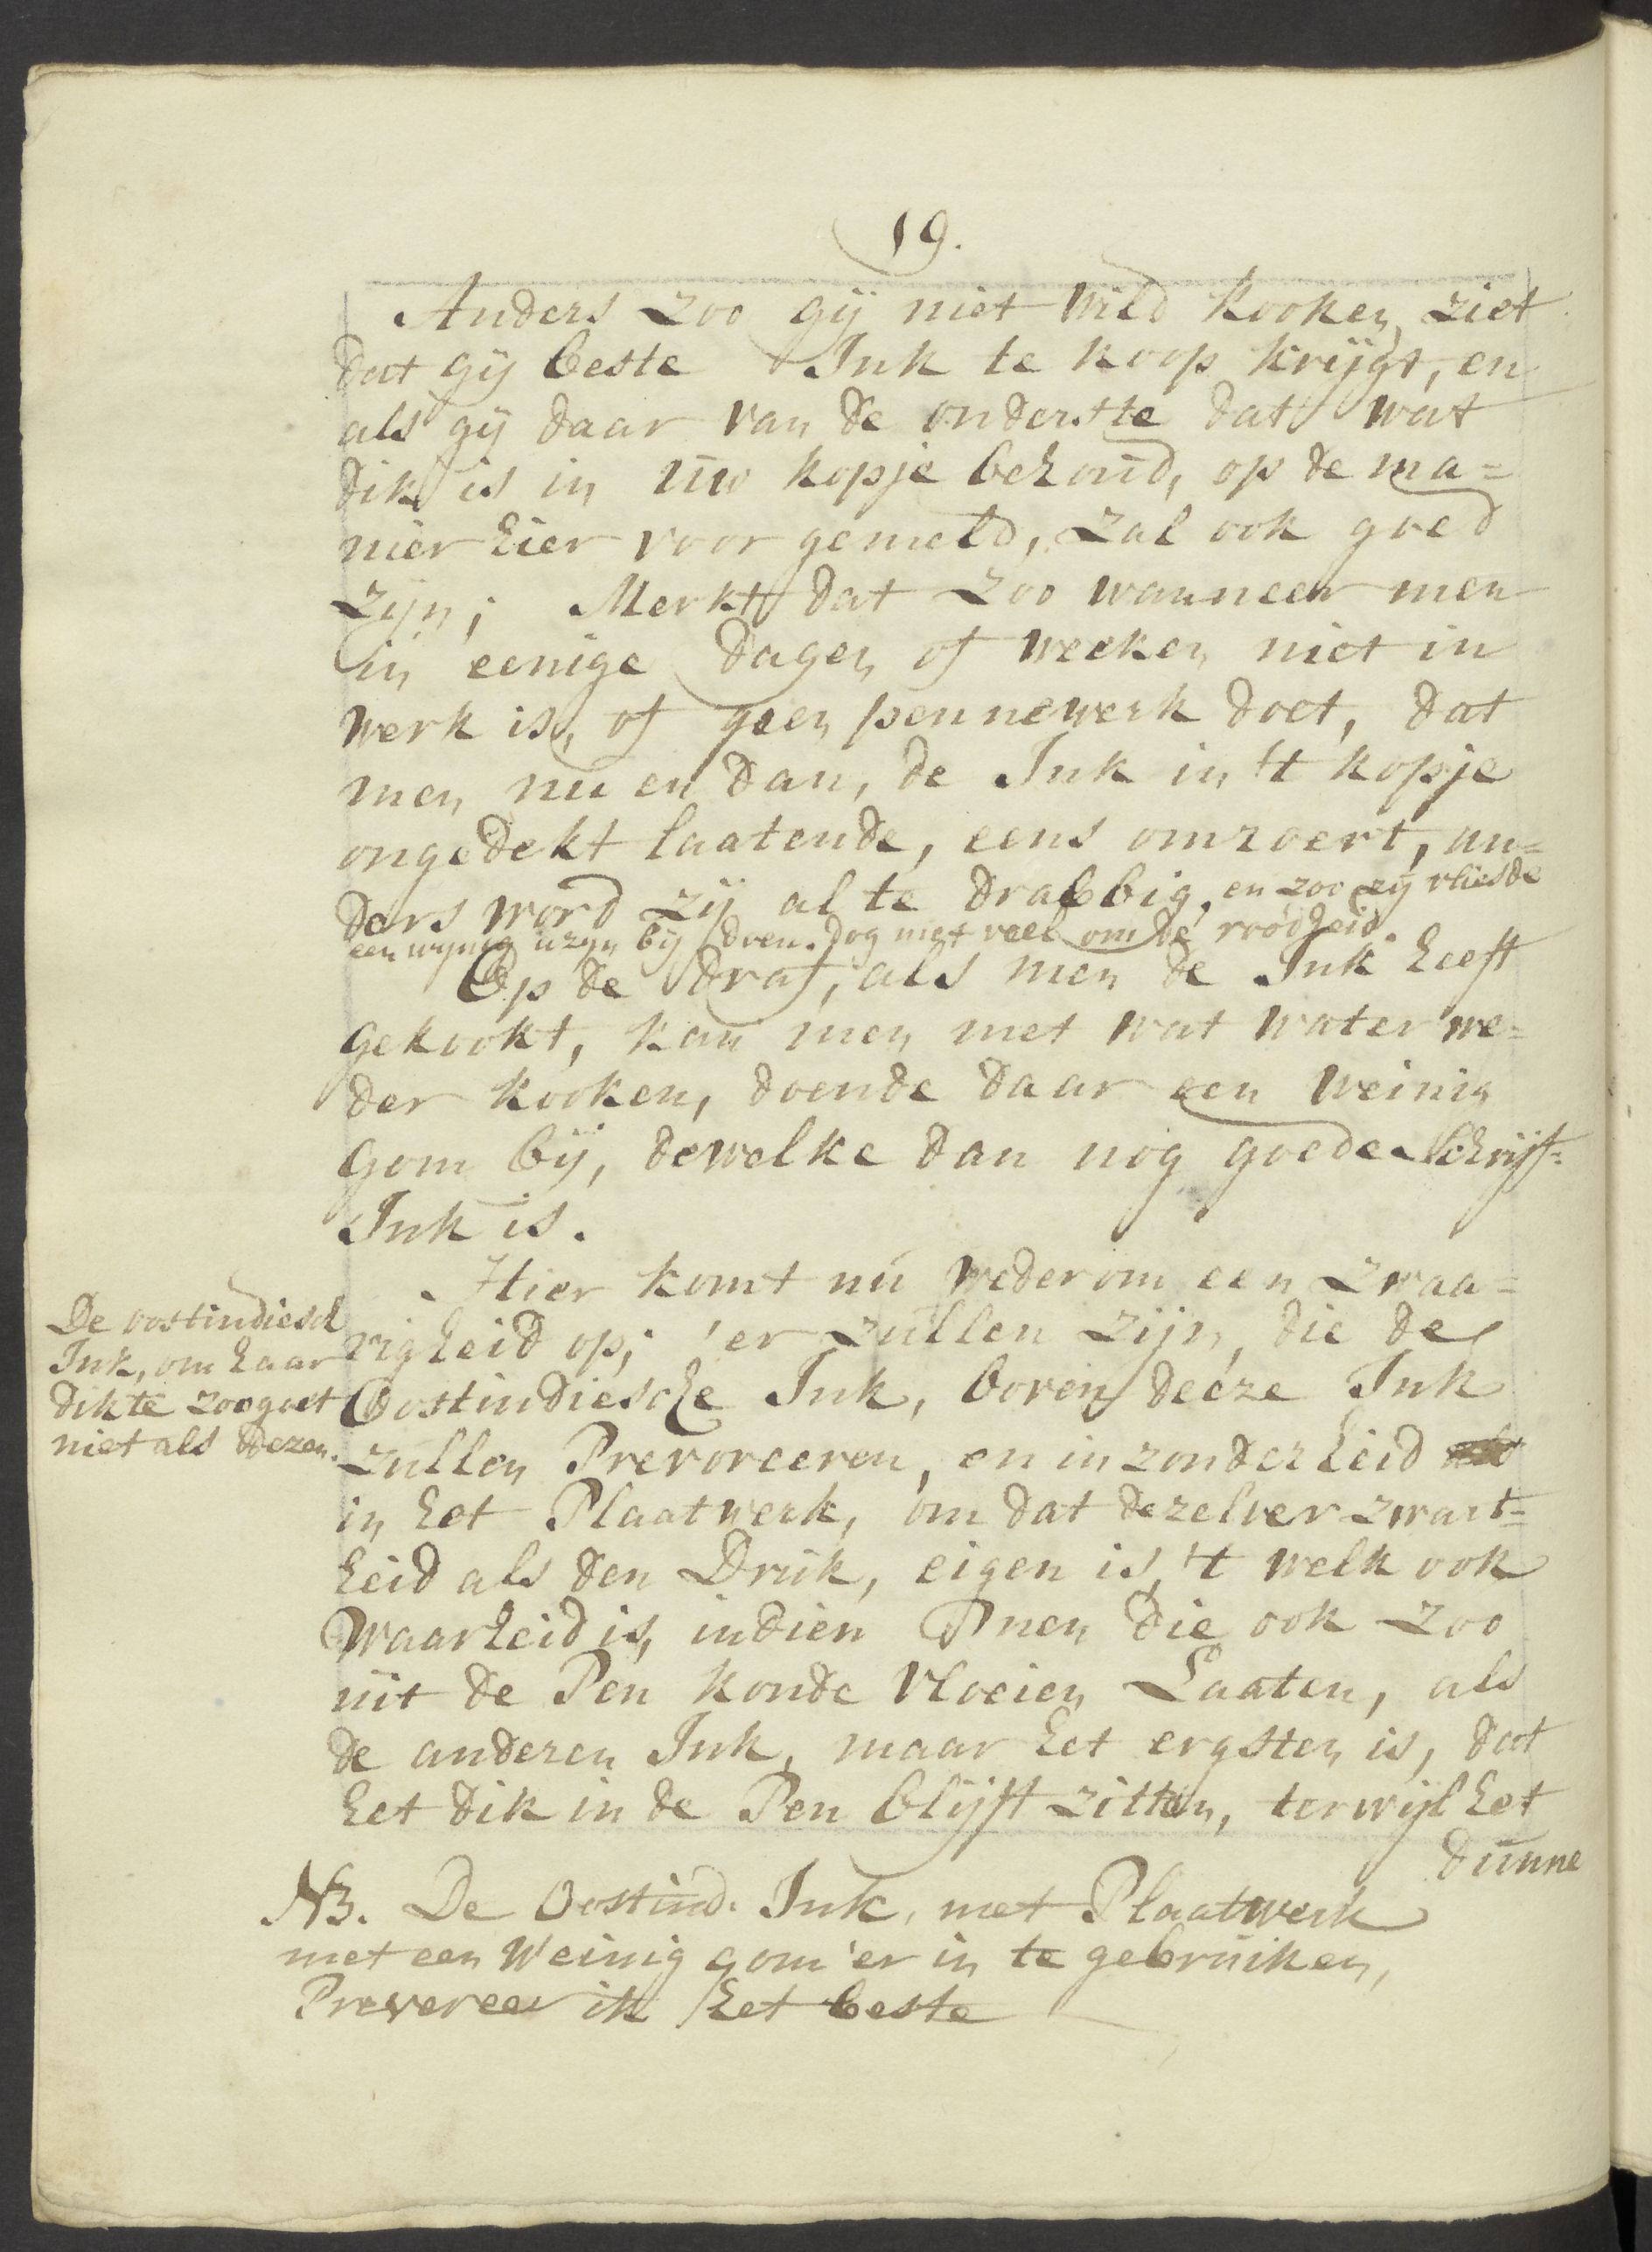 19.
Anders zoo gij niet wild kooken, ziet
dat gij beste Ink te koop krijgt, en
als gij daar van de onderste dat wat
dik is in uw kopje behoud, op de ma=
nier hier voor gemeld, zal ook goed
zijn; Merkt dat zoo wanneer men
in eenige dagen of weeken niet in
werk is, of geen pennewerk doet, dat
men nu en dan, de Ink in 't kopje
ongedekt laatende, eens omroert, an=
ders word zij al te drabbig, en zoo zij vliesde
een wynig azyn bij doen. dog niet veel om de roodheid.
Op de draf, als men de Ink heeft
gekookt, kan men met wat water we=
der kooken, doende daar een weinig
gom bij, dewelke dan nog goede Schrijf=
Ink is.
Hier komt nu wederom een zwaa=
righeid op; 'er zullen zijn, die de
Oostindiesche Ink, boven deeze Ink
zullen Prevoreeren, en inzonderheid
in het Plaatwerk, om dat dezelver zwart=
heid als den Druk, eigen is, 't welk ook
waarheid is, indien men die ook zoo
uit de Pen konde vloeien Laaten, als
de anderen Ink, maar het ergsten is, dat
het dik in de Pen blijft zitten, terwijl het
dunne
De oostindiesch
Ink, om haar
dikte zoo goet
niet als dezen.
NB. De Oostind. Ink, met Plaatwerk
met een Weinig gom 'er in te gebruiken,
Prevereer ik het beste